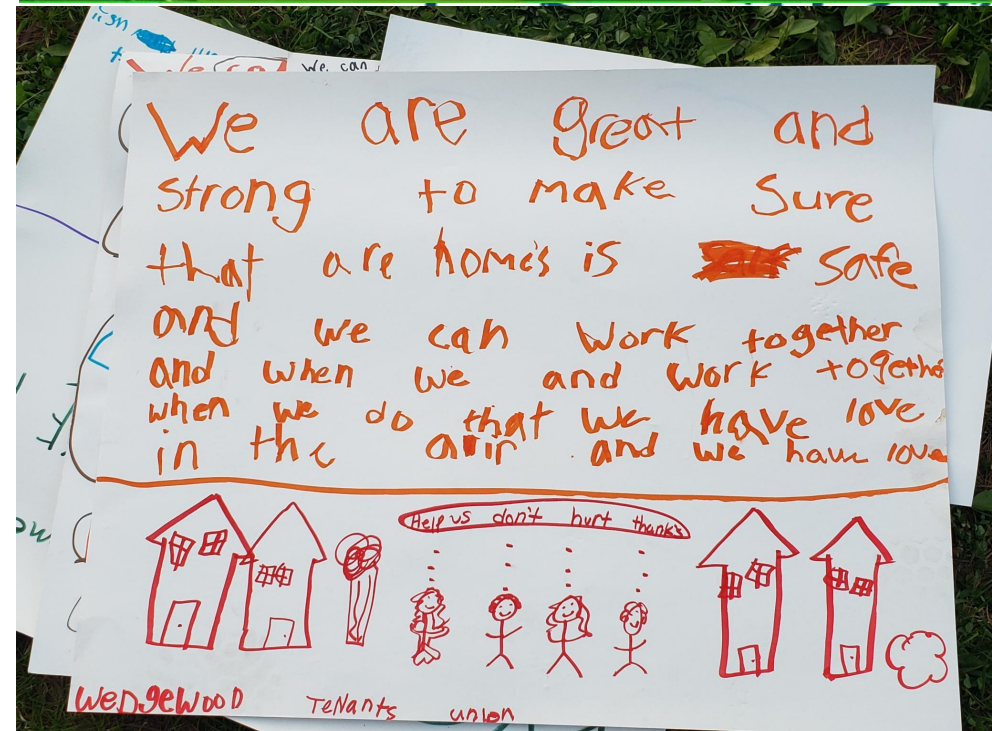 We can
We are great and
strong to make Sure
that are home's is safe
and we can work together
and when we and work togethe
when we do that we have love
in the air and we have love
Help us don't hurt thanks
WedgeWOOD TeNants union